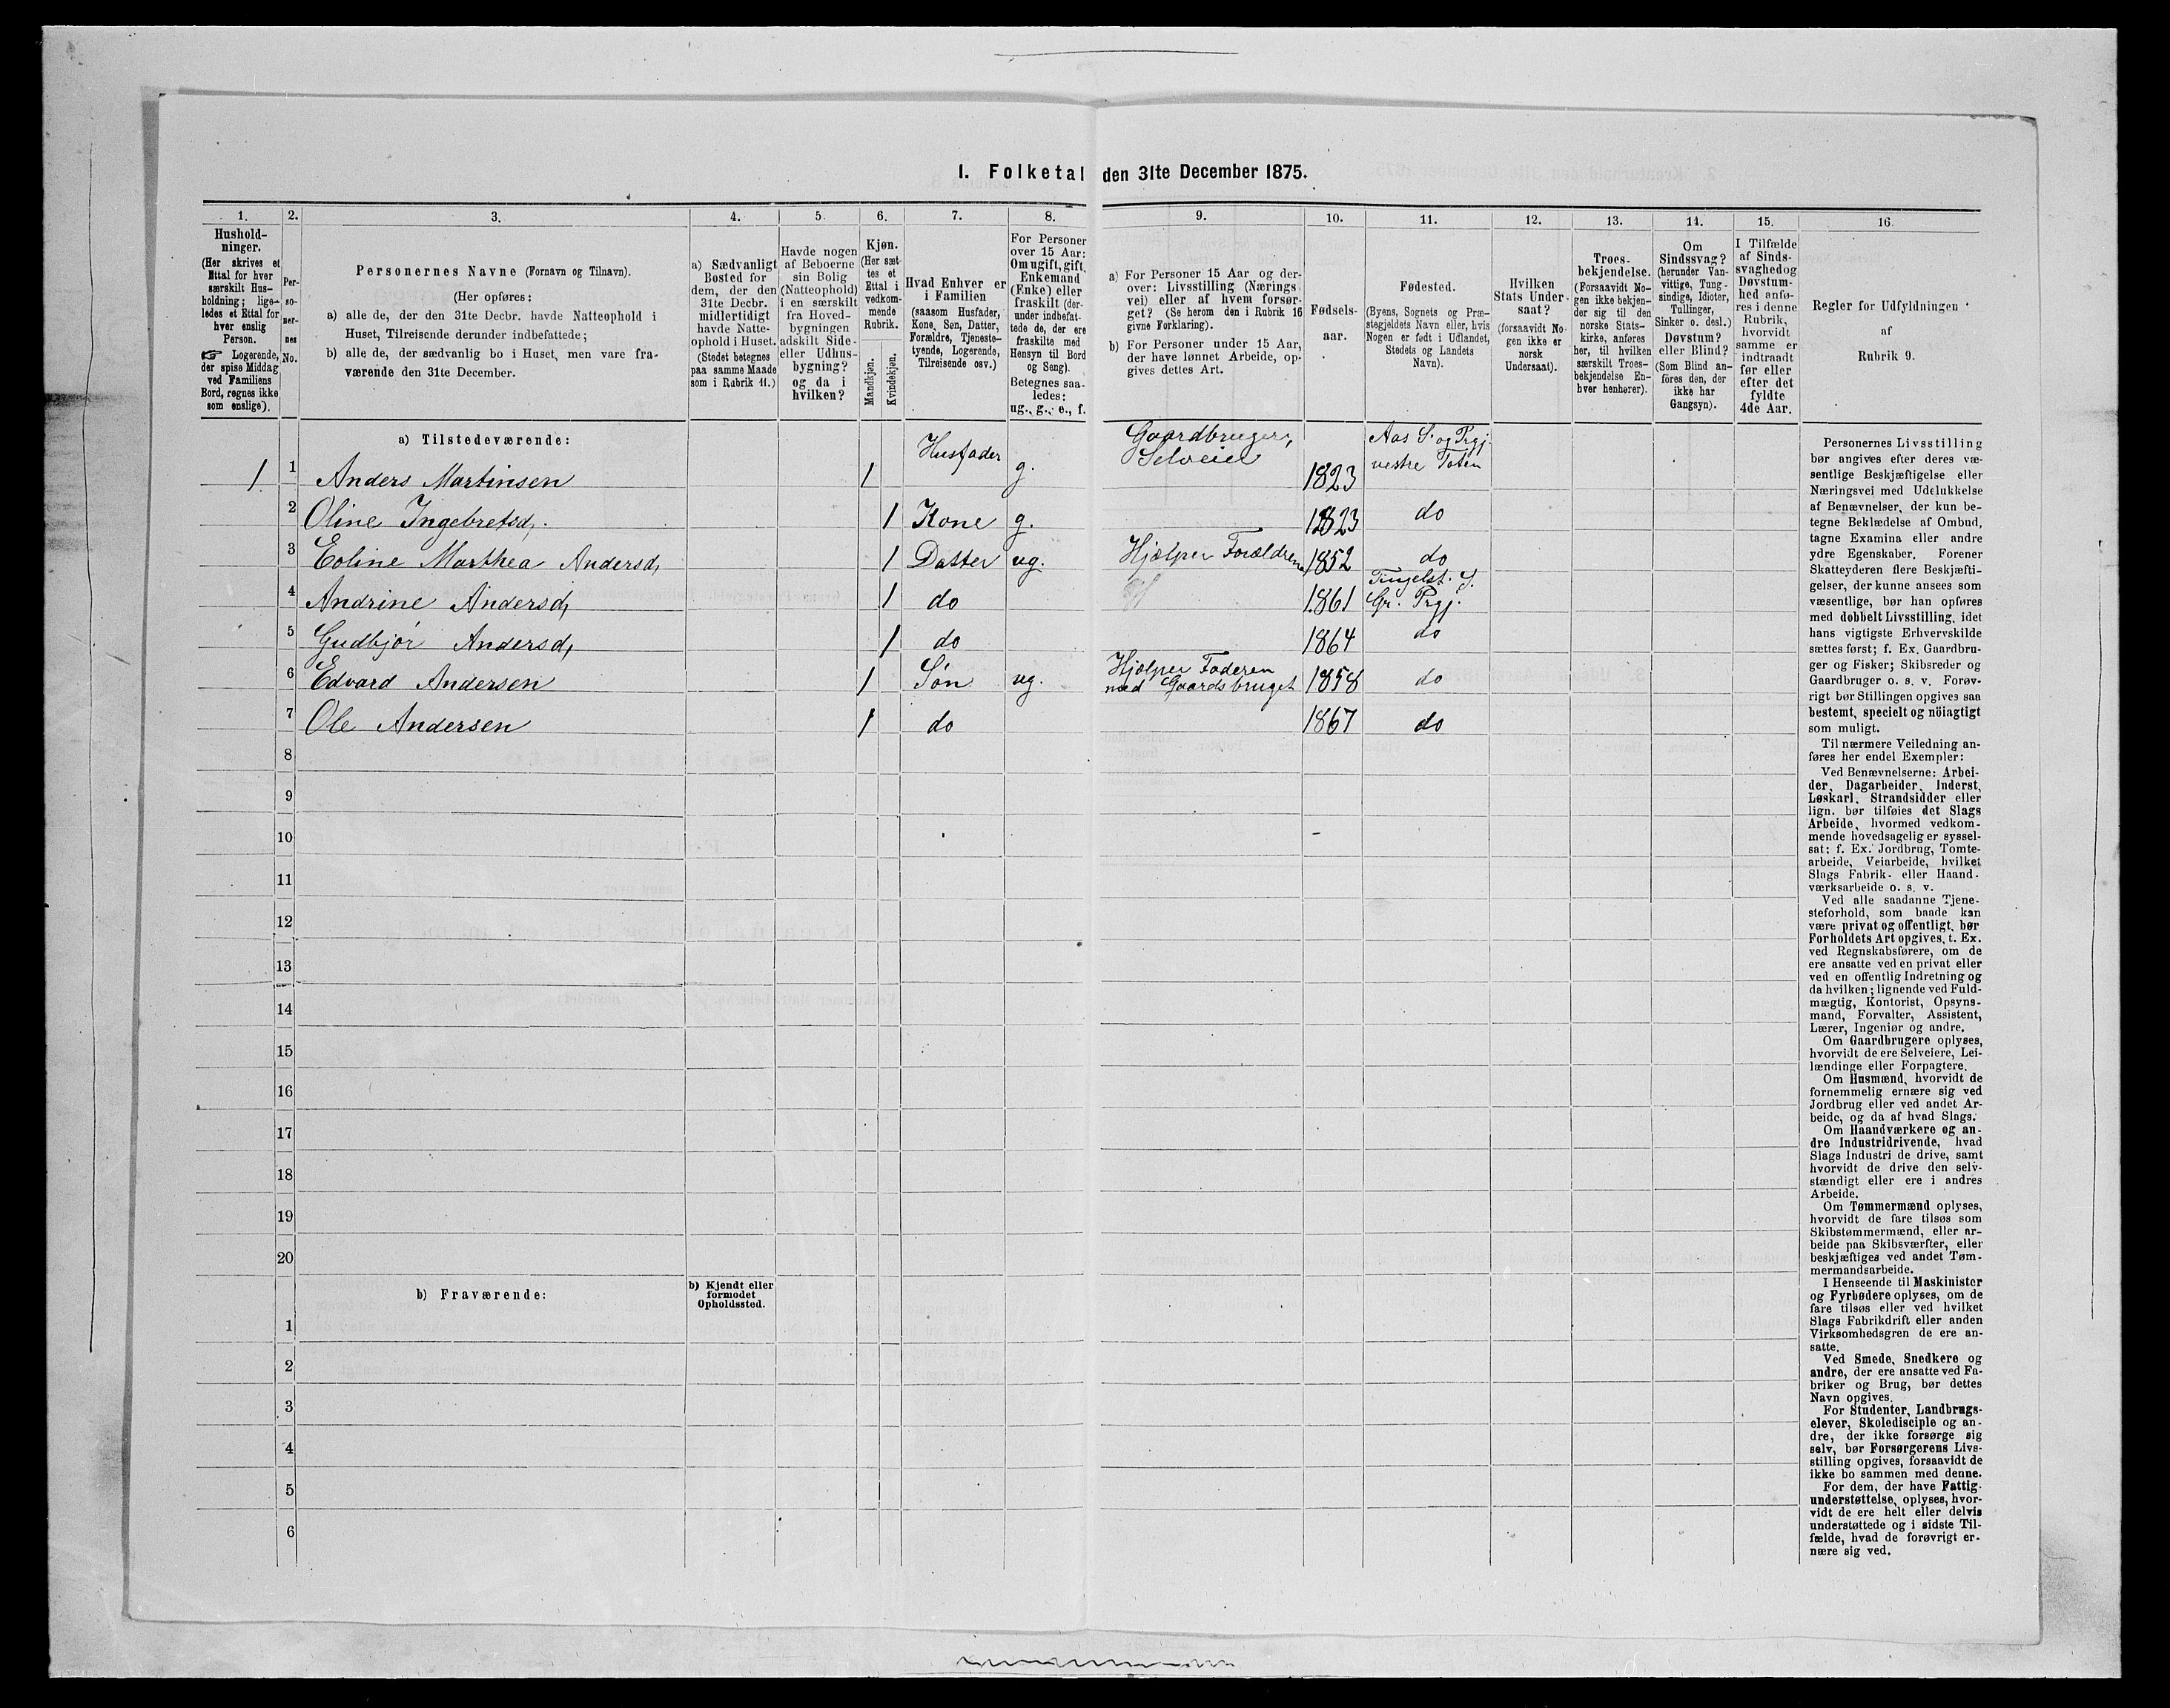 1. Folketal den 31te December 1875.
1.
2.
3.
4.
5.
6.
7.
8.
9.
10.
11.
12.
13.
14.
15.
16.
Hushold-
ninger.
(Her skrives et
Ettal for hver
særskilt Hus-
holdning; lige-
ledes et Ettal for
hver enslig
Person.
☞ Logerende,
der spise Middag
ved Familiens
Bord, regnes ikke
som enslige).
Per-
so-
ner-
nes
No.
Personernes Navne (Fornavn og Tilnavn).
(Her opføres:
a) alle de, der den 31te Decbr. havde Natteophold i
Huset, Tilreisende derunder indbefattede;
b) alle de, der sædvanlig bo i Huset, men vare fra-
værende den 31te December.
a) Sædvanligt
Bosted for
dem, der den
31te Decbr.
midlertidigt
havde Natte-
ophold i Huset.
(Stedet betegnes
paa samme Maade
som i Rubrik 11.)
Havde nogen
af Beboerne
sin Bolig
(Natteophold)
i en særskilt
fra Hoved-
bygningen
adskilt Side-
eller Udhus-
bygning?
og da i
hvilken?
Kjøn.
(Her sæt-
tes et
Ettal i
vedkom-
mende
Rubrik.
Mandkjøn.
Kvindekjøn.
Hvad Enhver er
i Familien
(saasom Husfader,
Kone, Søn, Datter,
Forældre, Tjeneste-
tyende, Logerende,
Tilreisende osv.)
For Personer
over 15 Aar:
Om ugift, gift,
Enkemand
(Enke) eller
fraskilt (der-
under indbefat-
tede de, der ere
fraskilte med
Hensyn til Bord
og Seng).
Betegnes saa-
ledes:
ug., g., e., f.
a) For Personer 15 Aar og der-
over: Livsstilling (Nærings
vei) eller af hvem forsør-
get? (Se herom den i Rubrik 16
givne Forklaring).
b) For Personer under 15 Aar,
der have lønnet Arbeide, op-
gives dettes Art.
Fødsels-
aar.
Fødested.
(Byens, Sognets og Præ-
stegjeldets Navn eller, hvis
Nogen er født i Udlandet,
Stedets og Landets
Navn).
Hvilken
Stats Under-
saat?
(forsaavidt No-
gen ikke er
norsk
Undersaat).
Troes-
bekjendelse.
(Forsaavidt No-
gen ikke bekjen-
der sig til den
norske Stats-
kirke, anføres
her, til hvilken
særskilt Troes-
bekjendelse En-
hver henhører).
Om
Sindssvag?
(herunder Van-
vittige, Tung-
sindige, Idioter,
Tullinger,
Sinker o. desl.)
Døvstum?
eller Blind?
(Som Blind an-
føres den, der
ikke har
Gangsyn).
I Tilfælde
af Sinds-
svaghed og
Døvstum-
hed anfø-
res i denne
Rubrik,
hvorvidt
samme er
indtraadt
før eller
efter det
fyldte
4de Aar.
Regler for Udfyldningen
af
Rubrik 9.
a) Tilstedeværende:
1 1 Anders Martinsen 1 Husfader g. Gaardbruger, Selveier 1823 Aas S. og Prgj. vestre Toten
2 Oline Ingebretsd. 1 Kone g. 1823 do
3 Eoline Marthea Andersd, 1 Datter ug. Hjælper Forældrene 1852 do
4 Andrine Andersd, 1 do 1861 Tingelst. S. Gr. Prgj.
5 Gudbjør Andersd, 1 do 1864 do
6 Edvard Andersen 1 Søn ug. Hjælper Faderen med Gaardsbruget 1858 do
7 Ole Andersen 1 do 1867 do
8
9
10
11
12
13
14
15
16
17
18
19
20
b) Fraværende:
b) Kjendt eller
formodet
Opholdssted.
1
2
3
4
5
6
Personernes Livsstilling
bør angives efter deres væ-
sentlige Beskjæftigelse eller
Næringsvei med Udelukkelse
af Benævnelser, der kun be-
tegne Beklædelse af Ombud,
tagne Examina eller andre
ydre Egenskaber. Forener
Skatteyderen flere Beskjæfti-
gelser, der kunne ansees som
væsentlige, bør han opføres
med dobbelt Livsstilling, idet
hans vigtigste Erhvervskilde
sættes først; f. Ex. Gaardbru-
ger og Fisker; Skibsreder og
Gaardbruger o. s. v. Forøv-
rigt bør Stillingen opgives saa
bestemt, specielt og nöiagtigt
som muligt.
Til nærmere Veiledning an-
føres her endel Exempler:
Ved Benævnelserne: Arbei-
der, Dagarbeider, Inderst,
Løskarl, Strandsidder eller
lign. bør tilføies det Slags
Arbeide, hvormed vedkom-
mende hovedsagelig er syssel-
sat; f. Ex. Jordbrug, Tomte-
arbeide, Veiarbeide, hvilket
Slags Fabrik- eller Haand-
værksarbeide o. s. v.
Ved alle saadanne Tjene-
steforhold, som baade kan
være privat og offentligt, bør
Forholdets Art opgives, t. Ex.
ved Regnskabsførere, om de
ere ansatte ved en privat eller
ved en offentlig Indretning og
da hvilken; lignende ved Fuld-
mægtig, Kontorist, Opsyns-
mand, Forvalter, Assistent,
Lærer, Ingeniør og andre.
Om Gaardbrugere oplyses,
hvorvidt de ere Selveiere, Lei-
lændinge eller Forpagtere.
Om Husmænd, hvorvidt de
fornemmelig ernære sig ved
Jordbrug eller ved andet Ar-
beide, og da af hvad Slags.
Om Haandværkere og an-
dre Industridrivende, hvad
Slags Industri de drive, samt
hvorvidt de drive den selv-
stændigt eller ere i andres
Arbeide.
Om Tømmermænd oplyses,
hvorvidt de fare tilsøs som
Skibstømmermænd, eller ar-
beide paa Skibsværfter, eller
beskjæftiges ved andet Tøm-
mermandsarbeide.
I Henseende til Maskinister
og Fyrbødere oplyses, om de
fare tilsøs eller ved hvilket
Slags Fabrikdrift eller anden
Virksomhedsgren de ere an-
satte.
Ved Smede, Snedkere og
andre, der ere ansatte ved Fa-
briker og Brug, bør dettes
Navn opgives.
For Studenter, Landbrugs-
elever, Skoledisciple og an-
dre, der ikke forsørge sig
selv, bør Forsørgerens Livs-
stilling opgives, forsaavidt de
ikke bo sammen med denne.
For dem, der have Fattig-
understøttelse, oplyses, hvor-
vidt de ere helt eller delvis
understøttede og i sidste Til-
fælde, hvad de forøvrigt er-
nære sig ved.